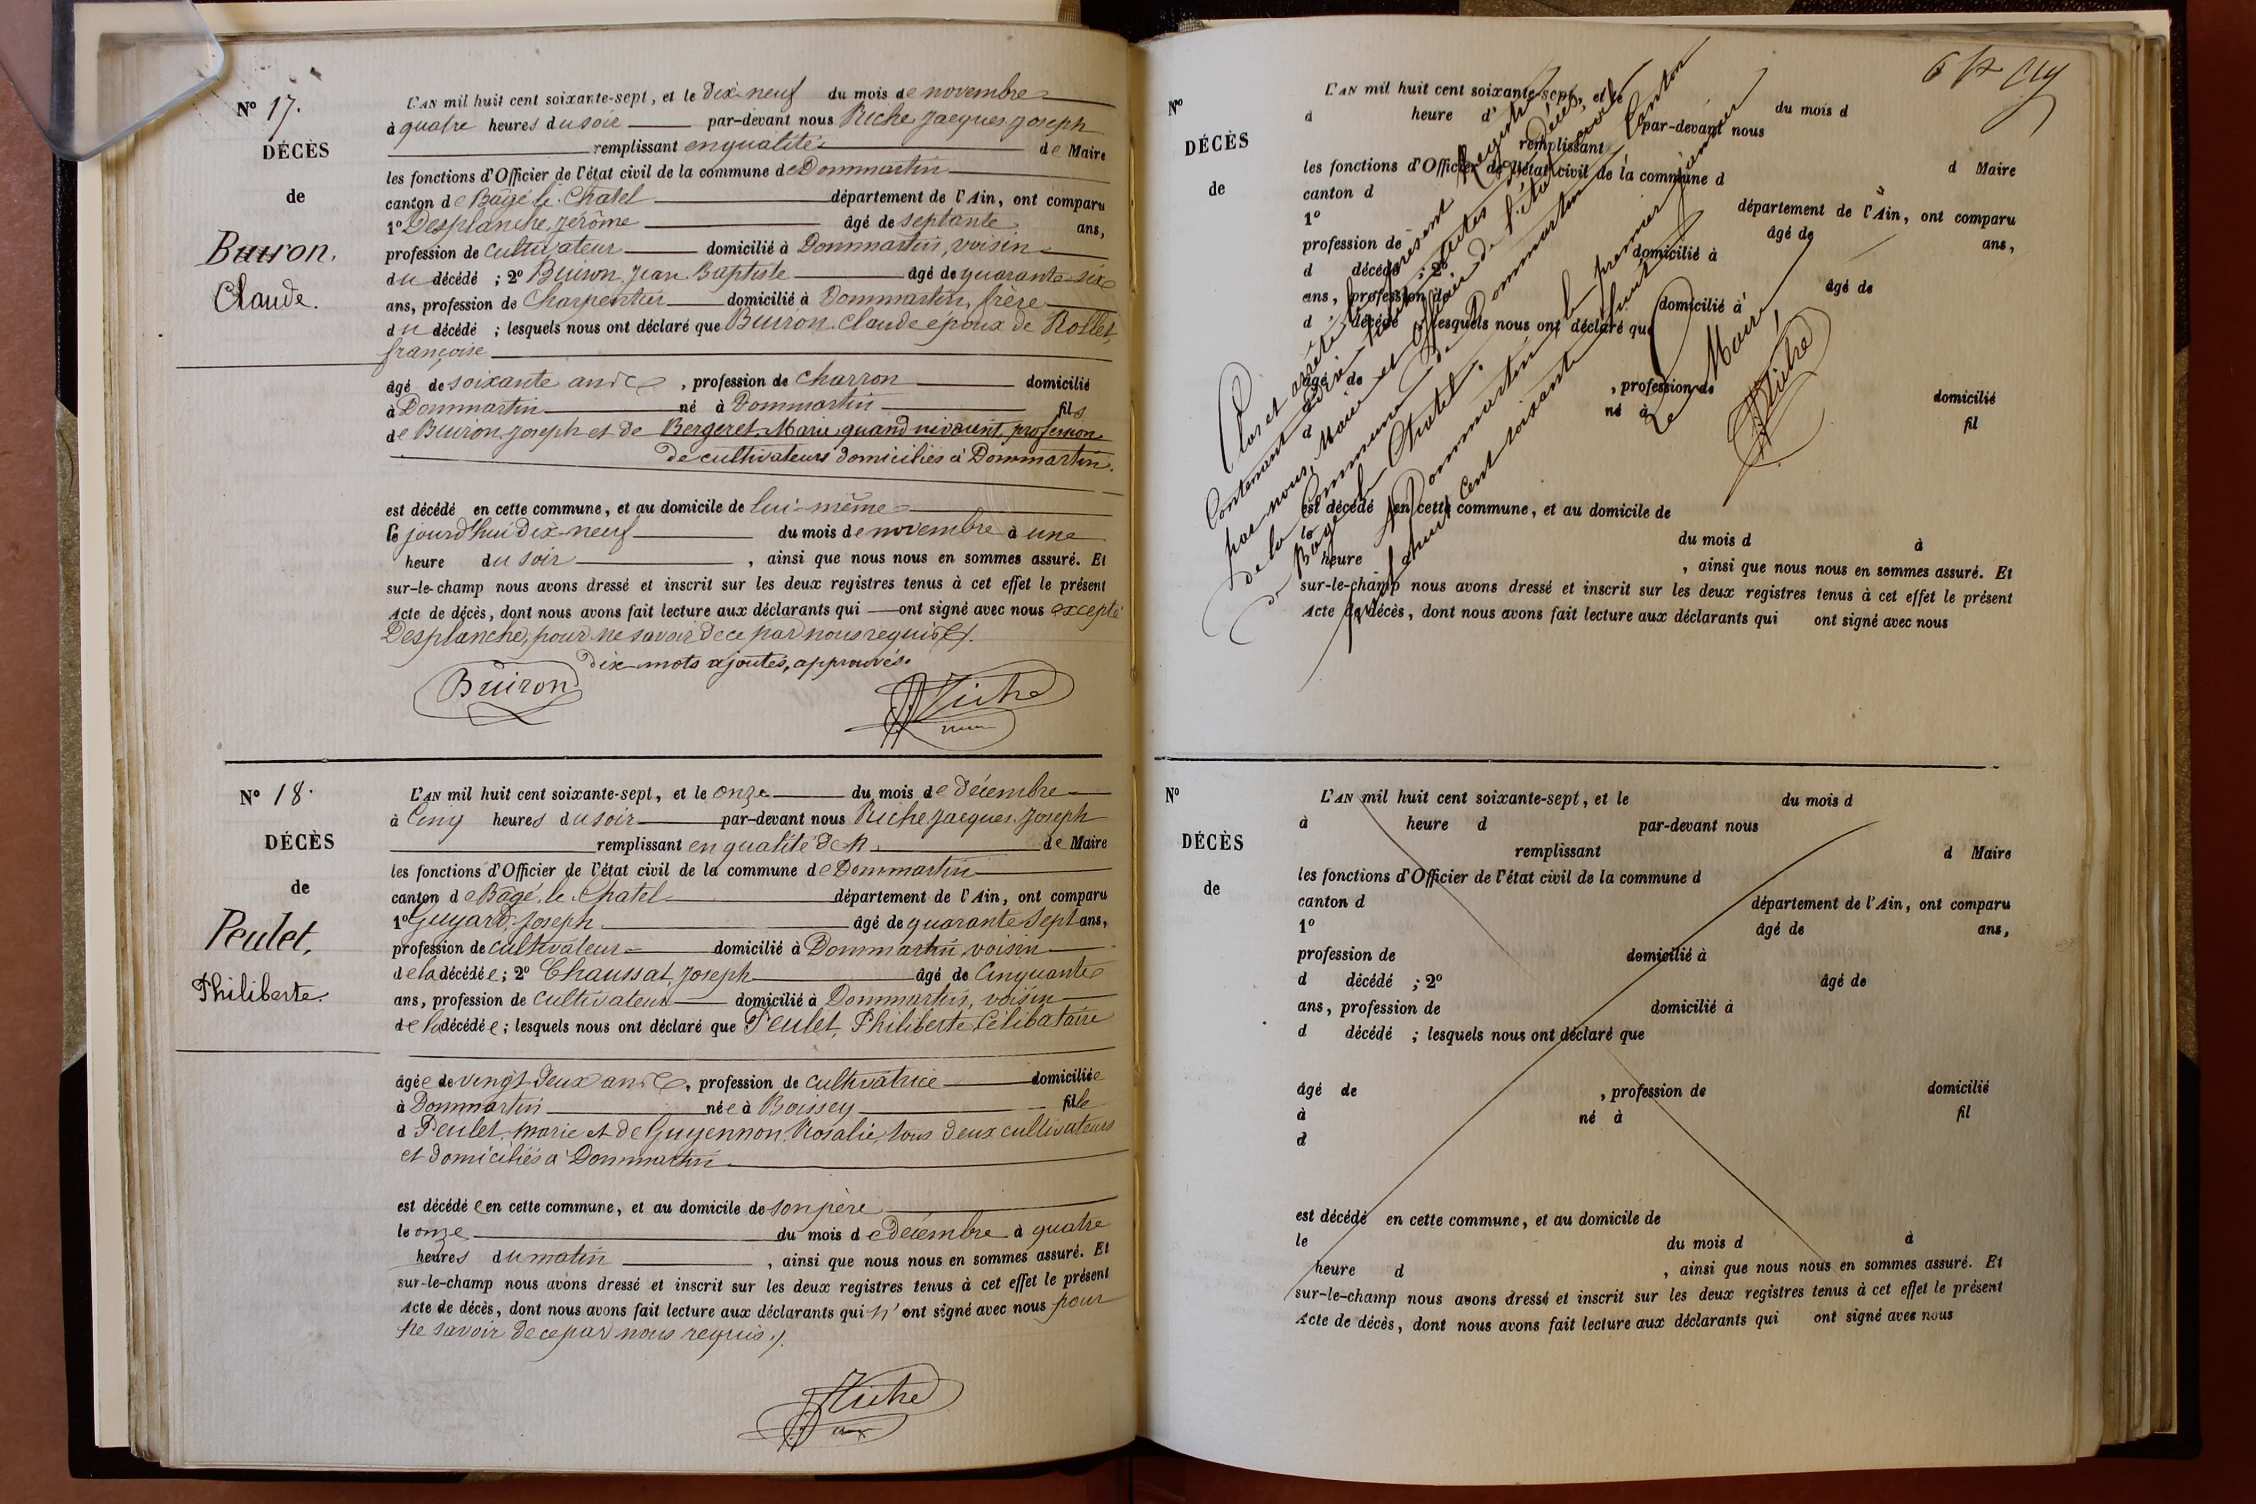 N° 17.
DÉCÈS
de
Buiron,
Claude.
L'AN mil huit cent soixante-sept, et le dix-neuf du mois de novembre
à quatre heures du soir par-devant nous Riche, Jacques, Joseph
remplissant en qualité de Maire
les fonctions d'Officier de l'état civil de la commune de Dommartin
canton de Bâgé-le-Chatel département de l'Ain, ont comparu
1° Desplanche, Jérôme âgé de septante ans,
profession de cultivateur domicilié à Dommartin, voisin
du décédé ; 2° Buiron, Jean Baptiste âgé de quarante-six
ans, profession de Charpentier domicilié à Dommartin, frère
du décédé ; lesquels nous ont déclaré que Buiron, Claude époux de Rollet,
françoise
âgé de soixante ans, profession de charron domicilié
à Dommartin né à Dommartin fils
de Buiron, Joseph et de Bergeret, Marie, quand vivaient, profession
de cultivateurs domiciliés à Dommartin.
est décédé en cette commune, et au domicile de lui-même
le jourd'hui dix-neuf du mois de novembre à une
heure du soir, ainsi que nous nous en sommes assuré. Et
sur-le-champ nous avons dressé et inscrit sur les deux registres tenus à cet effet le présent
Acte de décès, dont nous avons fait lecture aux déclarants qui ont signé avec nous excepté
Desplanche, pour ne savoir de ce par nous requis.
dix mots ajoutés, approuvés.
Buiron
JJRiche
N° 18.
DÉCÈS
de
Peulet,
Philiberte.
L'AN mil huit cent soixante-sept, et le onze du mois de décembre
à Cinq heures du soir par-devant nous Riche, Jacques, Joseph
remplissant en qualité de Maire
les fonctions d'Officier de l'état civil de la commune de Dommartin
canton de Bâgé-le-Chatel département de l'Ain, ont comparu
1° Guyard, Joseph âgé de quarante sept ans,
profession de cultivateur domicilié à Dommartin, voisin
de la décédée ; 2° Chaussat, Joseph âgé de Cinquante
ans, profession de cultivateur domicilié à Dommartin, voisin
de la décédée ; lesquels nous ont déclaré que Peulet, Philiberte, Célibataire
âgée de vingt-deux ans, profession de cultivatrice domiciliée
à Dommartin née à Boissey fille
d Peulet, marie et de Guyennon, Rosalie, tous deux cultivateurs
et domiciliés à Dommartin
est décédée en cette commune, et au domicile de son père
le onze du mois de décembre à quatre
heures du matin, ainsi que nous nous en sommes assuré. Et
sur-le-champ nous avons dressé et inscrit sur les deux registres tenus à cet effet le présent
Acte de décès, dont nous avons fait lecture aux déclarants qui n'ont signé avec nous pour
ne savoir de ce par nous requis.
JJRiche
N°
DÉCÈS
de
L'AN mil huit cent soixante-sept, et le du mois d
à heure d' par-devant nous
remplissant d Maire
les fonctions d'Officier de l'état civil de la commune d
canton d département de l'Ain, ont comparu
1° âgé de ans,
profession de domicilié à
d décédé ; 2° âgé de
ans, profession de domicilié à
d décédé ; lesquels nous ont déclaré que
âgé de , profession de domicilié
à né à fil
d
est décédé en cette commune, et au domicile de
le du mois d à
heure , ainsi que nous nous en sommes assuré. Et
sur-le-champ nous avons dressé et inscrit sur les deux registres tenus à cet effet le présent
Acte de décès, dont nous avons fait lecture aux déclarants qui ont signé avec nous
Clos et arrêté le présent Registre
Contenant dix-huit actes de décès,
par nous, Maire et officier de l'état civil
de la Commune de Dommartin Canton
de Bâgé le Chatel.
A Dommartin le premier janvier
mil huit cent soixante huit
Le Maire,
JJRiche
N°
DÉCÈS
de
L'AN mil huit cent soixante-sept, et le du mois d
à heure d par-devant nous
remplissant d Maire
les fonctions d'Officier de l'état civil de la commune d
canton d département de l'Ain, ont comparu
1° âgé de ans,
profession de domicilié à
d décédé ; 2° âgé de
ans, profession de domicilié à
d décédé ; lesquels nous ont déclaré que
âgé de , profession de domicilié
à né à fil
d
est décédé en cette commune, et au domicile de
le du mois d à
heure d , ainsi que nous nous en sommes assuré. Et
sur-le-champ nous avons dressé et inscrit sur les deux registres tenus à cet effet le présent
Acte de décès, dont nous avons fait lecture aux déclarants qui ont signé avec nous